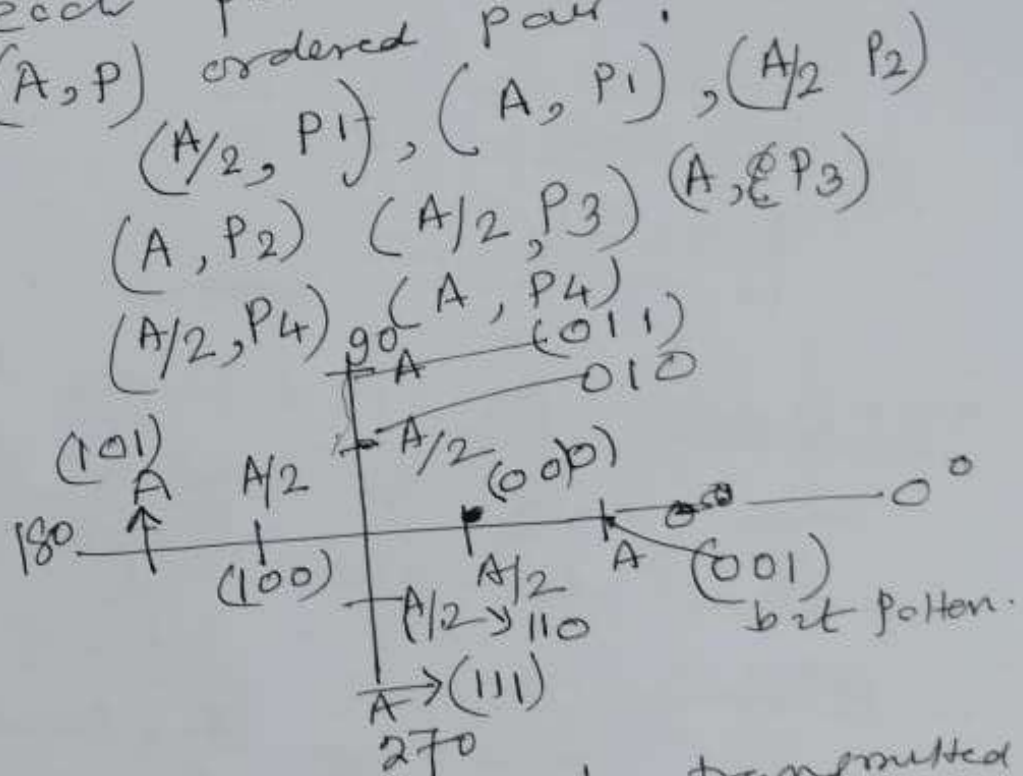 each
(A, P) ordered pair.
(A/2, P1), (A, P1), (A/2 P2)
(A, P2) (A/2, P3) (A, P3)
(A/2, P4) (A, P4)
90
A (011)
A/2 010
(101)
A A/2 (000)
180 0°
(100) A/2 A (001)
A/2 → 110 bit pattern.
A → (111)
270
transmitted